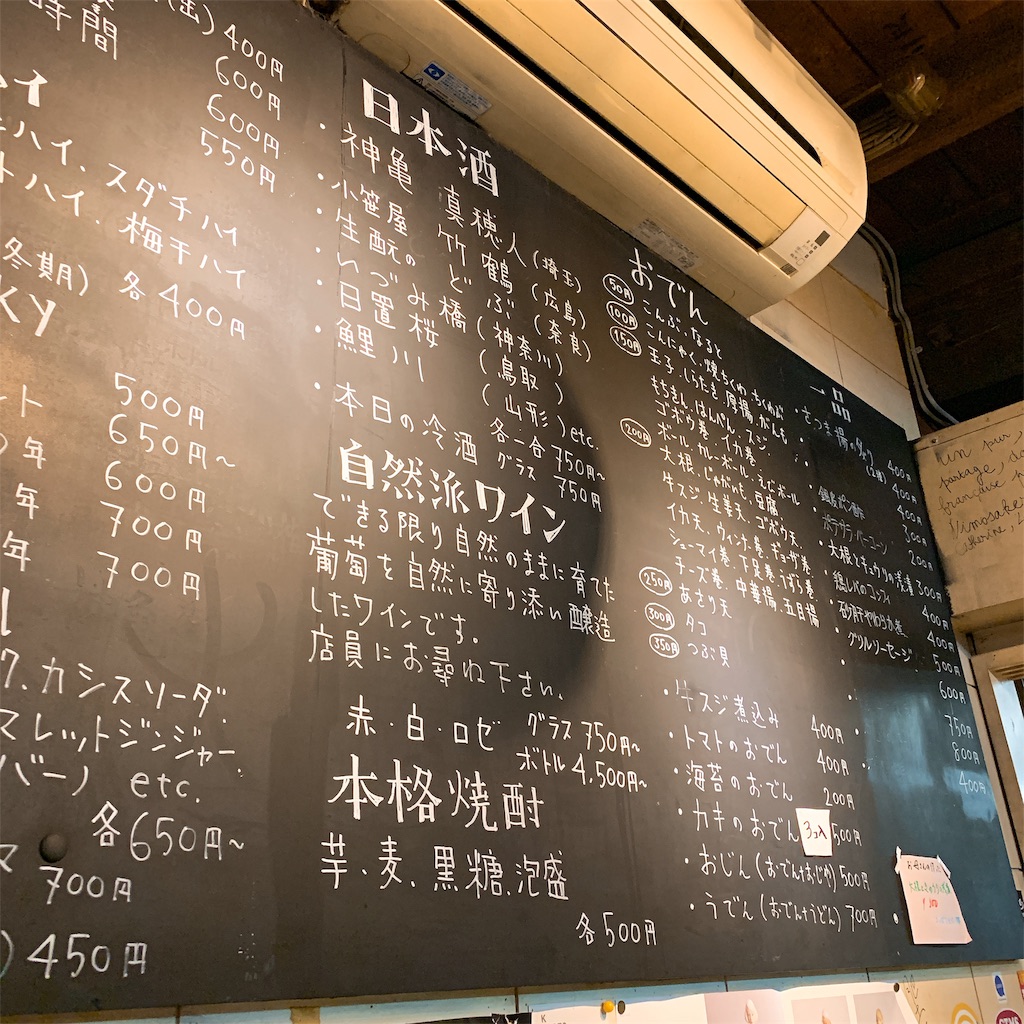 (缶) 400円
時間 600円
600円
550円
ハイ
ハイ、スダチハイ
トハイ、梅干ハイ
(冬期) 各400円
KY
500円
650円~
年 600円
年 700円
年 700円
カシスソーダ
マレットジンジャー
バーノ etc.
各650円~
700円
450円
日本酒
・神亀 真穂人(埼玉)
・小笹屋 竹鶴 (広島)
・生酛のどぶ (奈良)
・いづみ橋 (神奈川)
・日置桜 (鳥取)
・鯉川 (山形) etc.
各一合 750円~
・本日の冷酒 グラス 750円
自然派ワイン
できる限り自然のままに育てた
葡萄を自然に寄り添い醸造
したワインです。
店員にお尋ね下さい。
赤・白・ロゼ グラス 750円~
ボトル 4,500円~
本格焼酎
芋、麦、黒糖、泡盛
各500円
おでん
50円 こんぶ、なると
100円 こんにゃく、焼ちくわ、ちくわぶ
150円 玉子、しらたき、厚揚、がんも
もちきん、はんぺん、スジ
ゴボウ巻、イカ巻、
ボール、カレーボール、えびボール
200円 大根、じゃがいも、豆腐
牛スジ、生姜天、ゴボウ天
イカ天、ウィンナー巻、ギョーザ巻
シューマイ巻、ゲソ足巻、うずら巻
チーズ巻、中華揚、五目揚
250円 あさり天
300円 タコ
350円 つぶ貝
・牛スジ煮込み 400円
・トマトのおでん 400円
・海苔のおでん 200円
・カキのおでん 3コ入 500円
・おじん(おでん+おじや) 500円
・うでん(おでん+うどん) 700円
一品
・さつま揚 400円
(2種) 400円
400円
300円
200円
・大根とキュウリの浅漬 300円
・鶏レバのコンフィ 400円
・砂肝やわらか煮 400円
・グリルソーセージ 500円
600円
750円
800円
400円